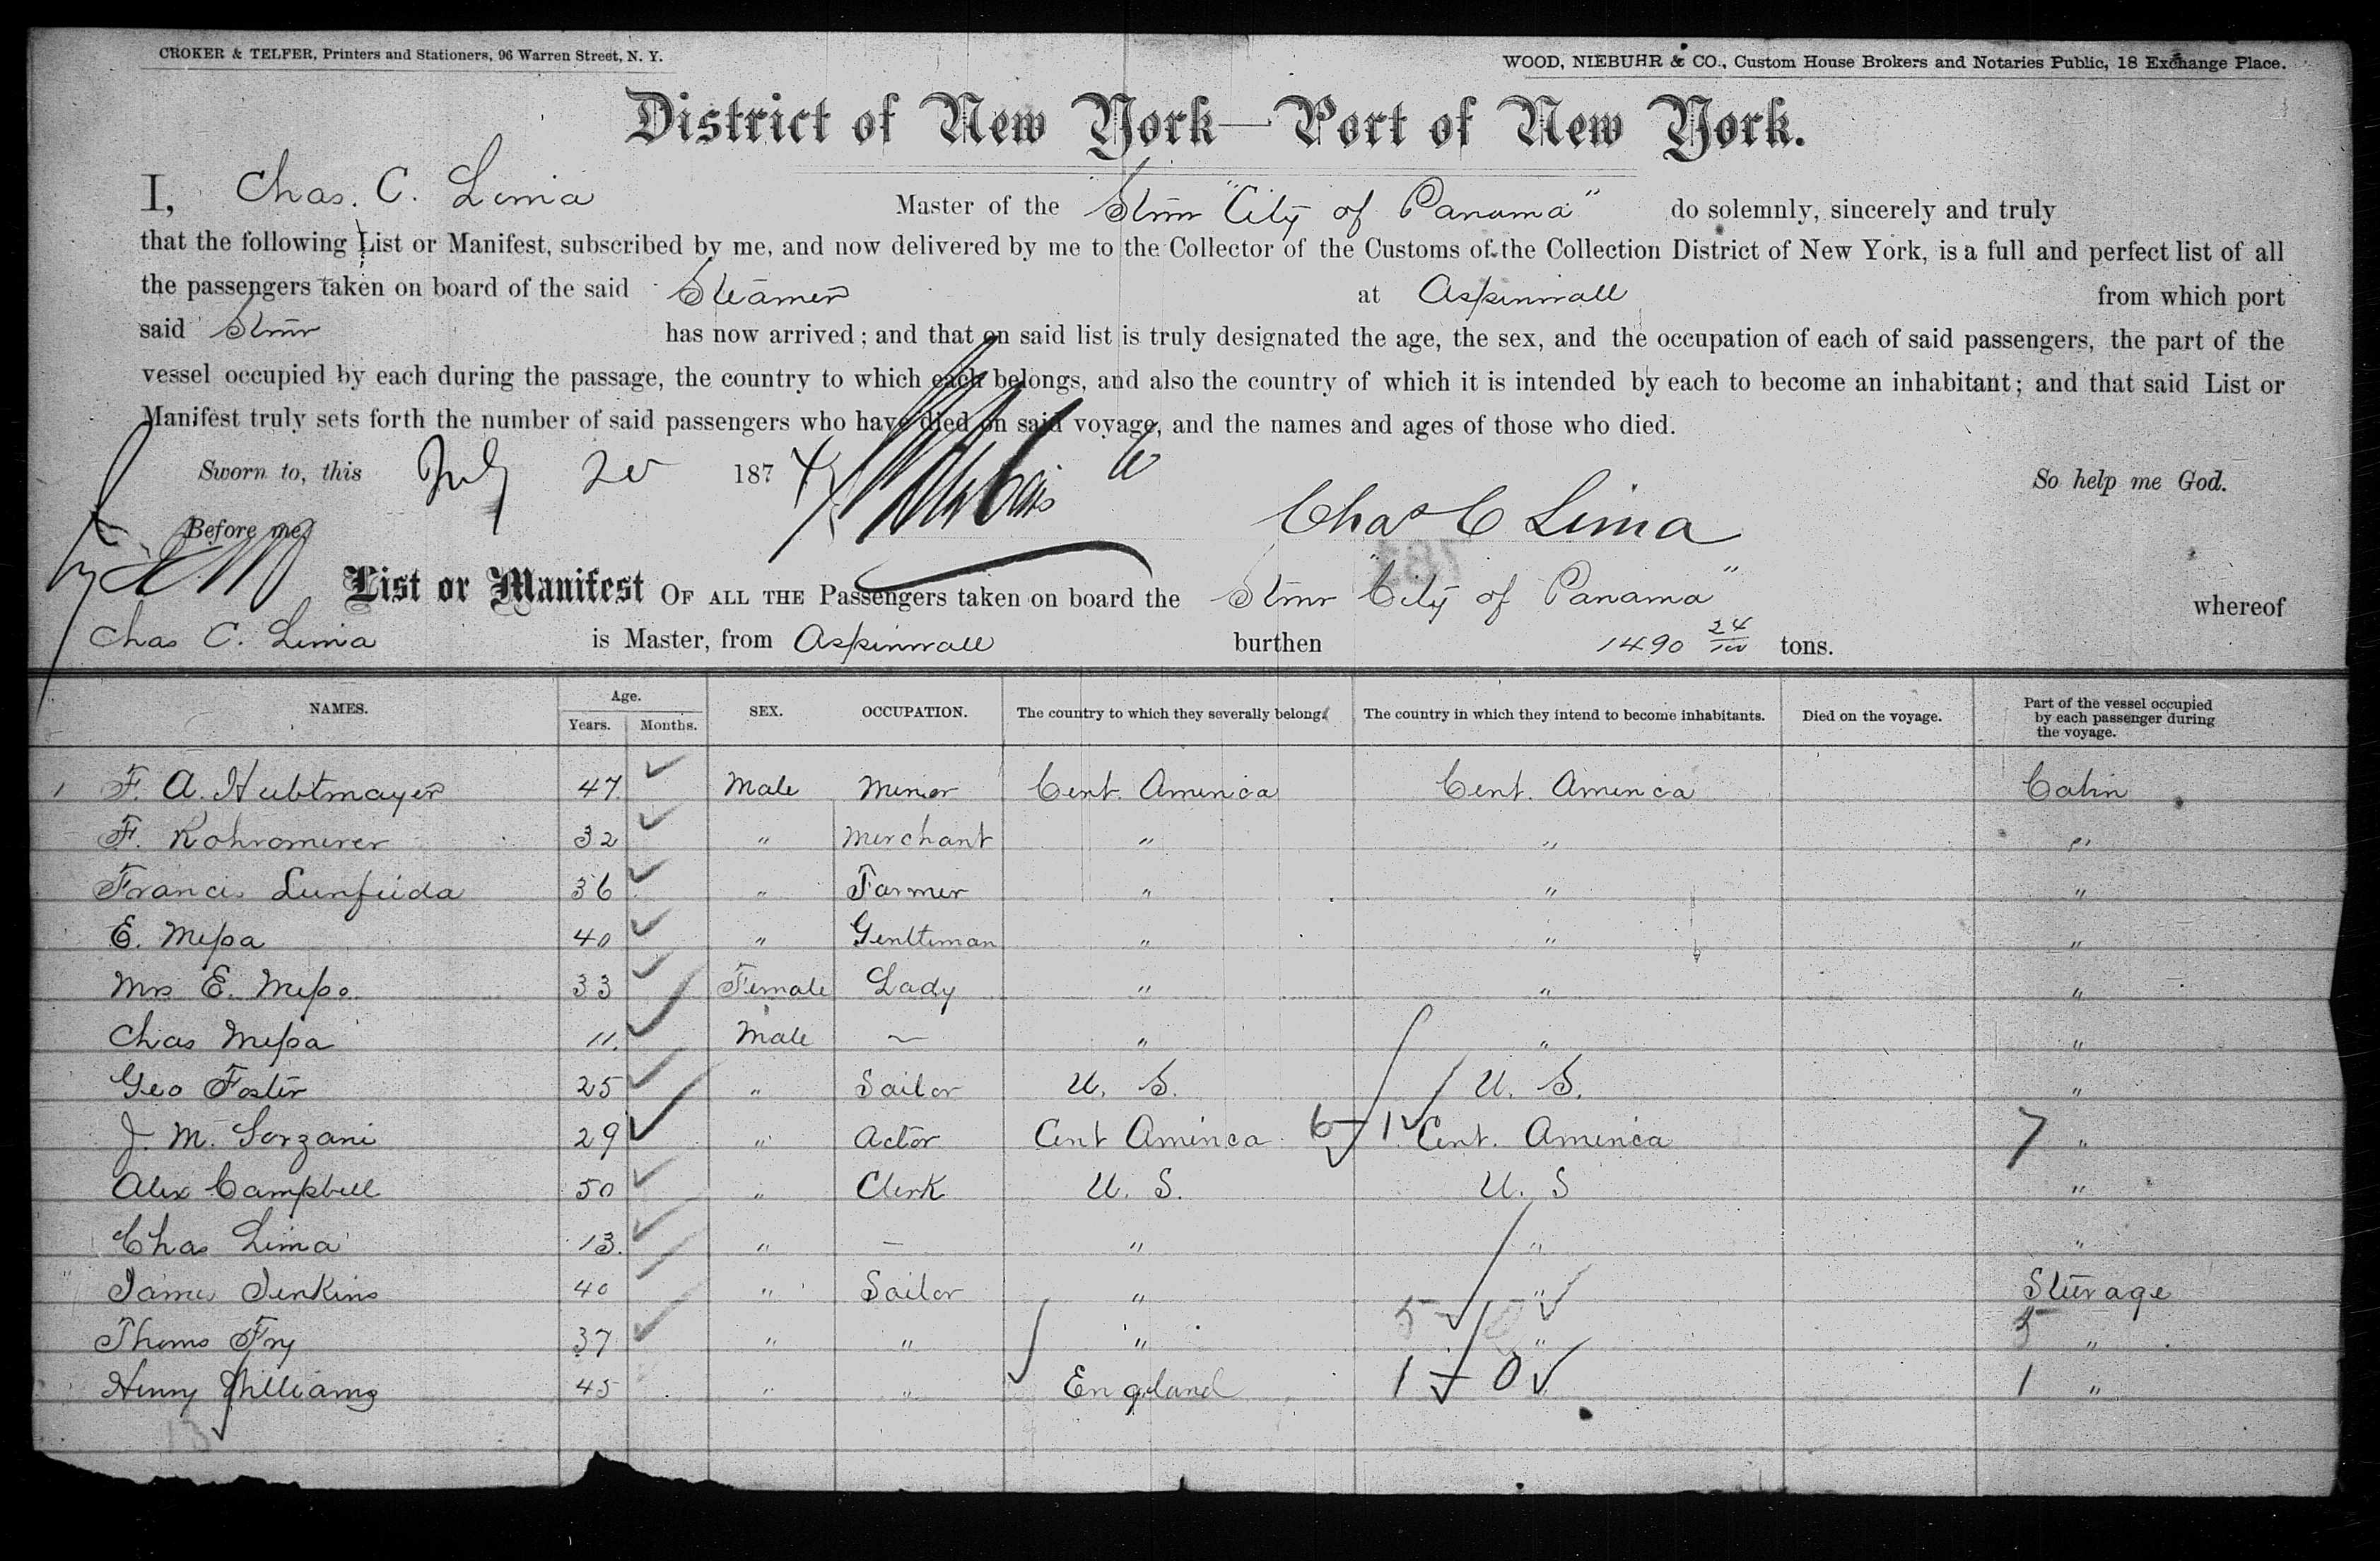 CROKER & TELFER, Printers and Stationers, 96 Warren Street, N. Y. WOOD, NIEBUHR & CO., Custom House Brokers and Notaries Public, 18 Exchange Place.
District of New York—Port of New York.
I, Chas. C. Lima Master of the Stmr "City of Panama" do solemnly, sincerely and truly
that the following List or Manifest, subscribed by me, and now delivered by me to the Collector of the Customs of the Collection District of New York, is a full and perfect list of all
the passengers taken on board of the said Steamer at Aspinwall from which port
said Stmr has now arrived; and that on said list is truly designated the age, the sex, and the occupation of each of said passengers, the part of the
vessel occupied by each during the passage, the country to which each belongs, and also the country of which it is intended by each to become an inhabitant; and that said List or
Manifest truly sets forth the number of said passengers who have died on said voyage, and the names and ages of those who died.
Sworn to, this July 20 187 So help me God.
Before me, Chas C Lima
List or Manifest OF ALL THE Passengers taken on board the Stmr "City of Panama" whereof
Chas C. Lima is Master, from Aspinwall burthen 1490 24/100 tons.
NAMES. Age. Years. Months. SEX. OCCUPATION. The country to which they severally belong. The country in which they intend to become inhabitants. Died on the voyage. Part of the vessel occupied by each passenger during the voyage.
1 F. A. Hubtmayer 47 Male Miner Cent. America Cent. America Cabin
F. 32 " Merchant " " "
Francis 36 " Farmer " " "
E. Messa 40 " Gentleman " " "
Mrs E. Messa 33 Female Lady " " "
Chas Messa 11. Male — " " "
Geo Foster 25 " Sailor U. S. U. S. "
J. M. Sorzani 29 " Actor Cent America 6 1 Cent. America 7 "
Alex Campbell 50 " Clerk U. S. U. S "
Chas Lima 13. " — " " "
James Jenkins 40 " Sailor " " Steerage
Thoms Fry 37 " " " 5 0 " 5 "
Henry Williams 45 " " England 1 0 1 "
13